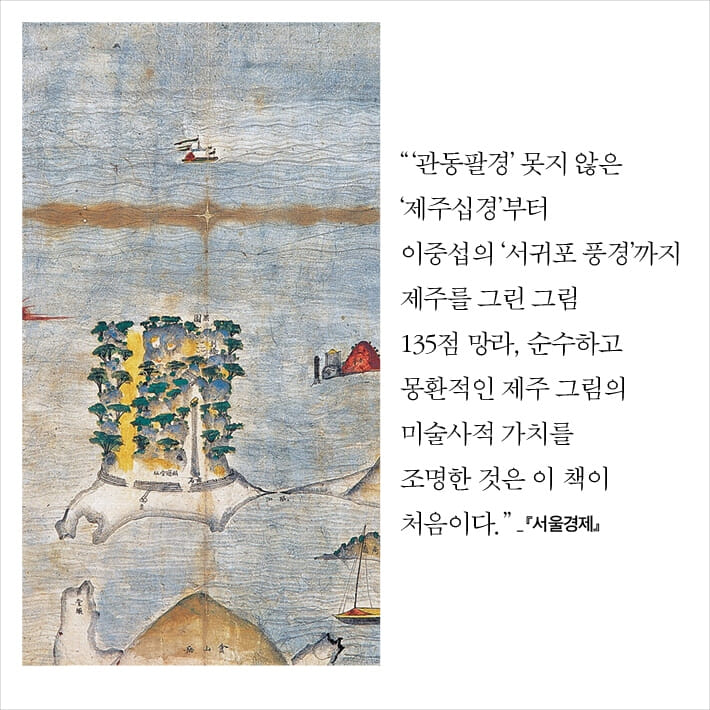 “ ‘관동팔경’ 못지 않은
‘제주십경’부터
이중섭의 ‘서귀포 풍경’까지
제주를 그린 그림
135점 망라, 순수하고
몽환적인 제주 그림의
미술사적 가치를
조명한 것은 이 책이
처음이다.” _『서울경제』